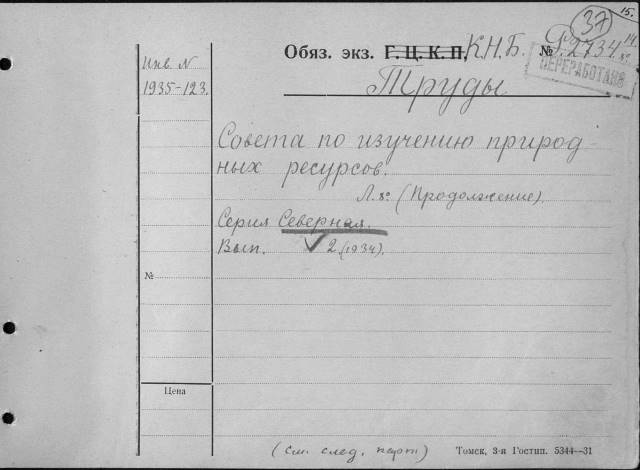 15.
37
Обяз. экз. Г. Ц. К. П. К.Н.Б. № Р.2734
ПЕРЕРАБОТАНО
Инв. N
1935-123.
Труды
Совета по изучению природ-
ных ресурсов.
Л. 8° (Продолжение)
Серия Северная.
Вып. 2 (1934).
№
Цена
(см. след. карт)
Томск, 3-я Гостип. 5344—31